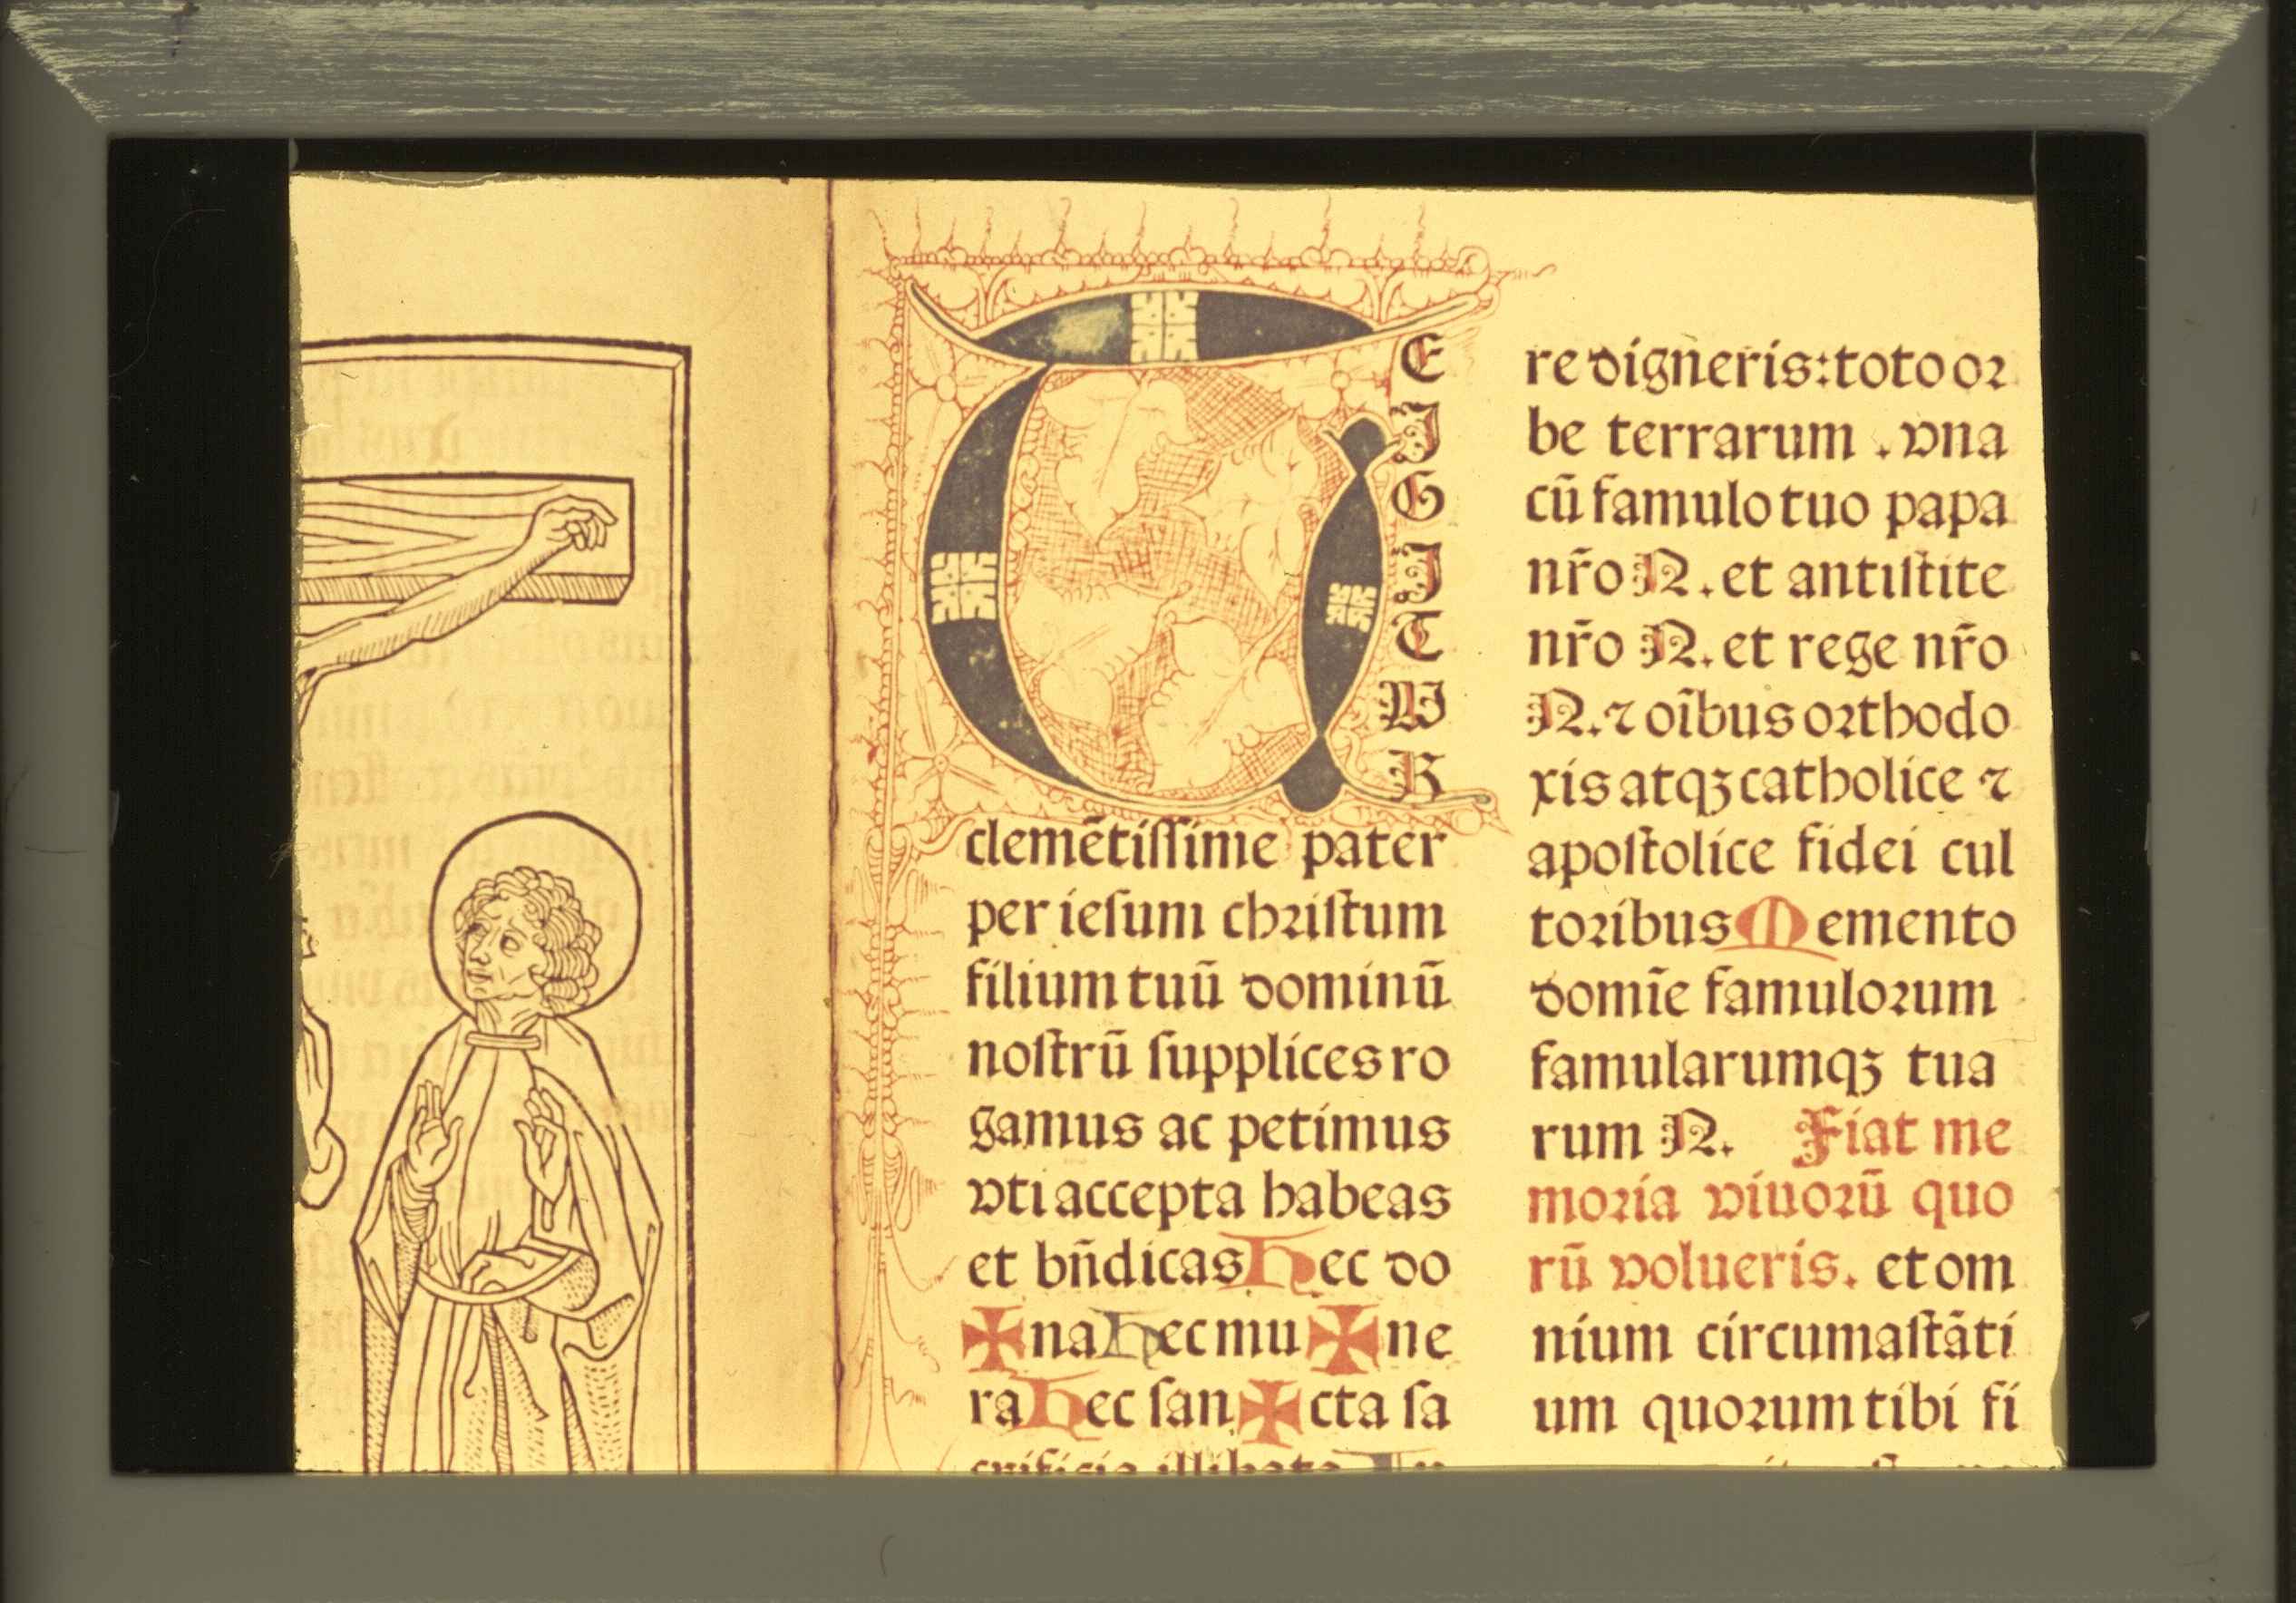 T
E
J
G
J
T
W
R
clemētiſſime pater
per ieſum chꝛiſtum
filium tuū dominū
noſtrū ſupplices ro
gamus ac petimus
vti accepta habeas
et bn̄dicas Hec do
✠ na Hec mu ✠ ne
ra Hec ſan ✠ cta ſa
crificia illibata In
re digneris: toto oꝛ
be terrarum . vna
cū famulo tuo papa
nr̄o N. et antiſtite
nr̄o N. et rege nr̄o
N. ⁊ oībus oꝛthodo
xis atqꝫ catholice ⁊
apoſtolice fidei cul
toꝛibus Memento
domīe famuloꝛum
famularumqꝫ tua
rum N. Fiat me
moꝛia viuoꝛū quo
rū volueris. et om
nium circumaſtāti
um quoꝛum tibi fi